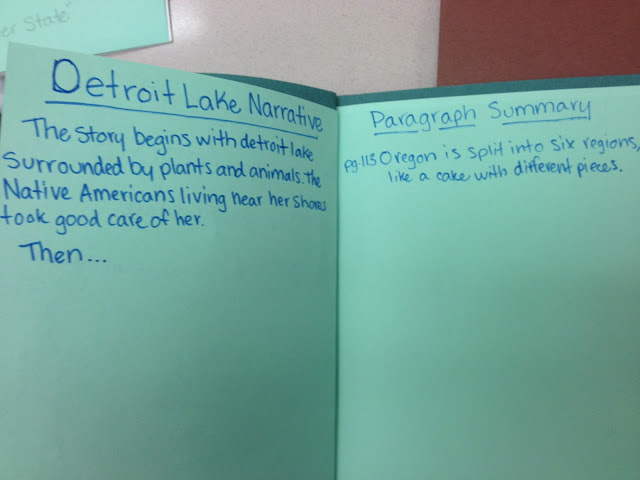 er State"
Detroit Lake Narrative
The Story begins with detroit lake
Surrounded by plants and animals. The
Native Americans living near her shores
took good care of her.
Then...
Paragraph Summary
pg. 113 Oregon is split into six regions,
like a cake with different pieces.